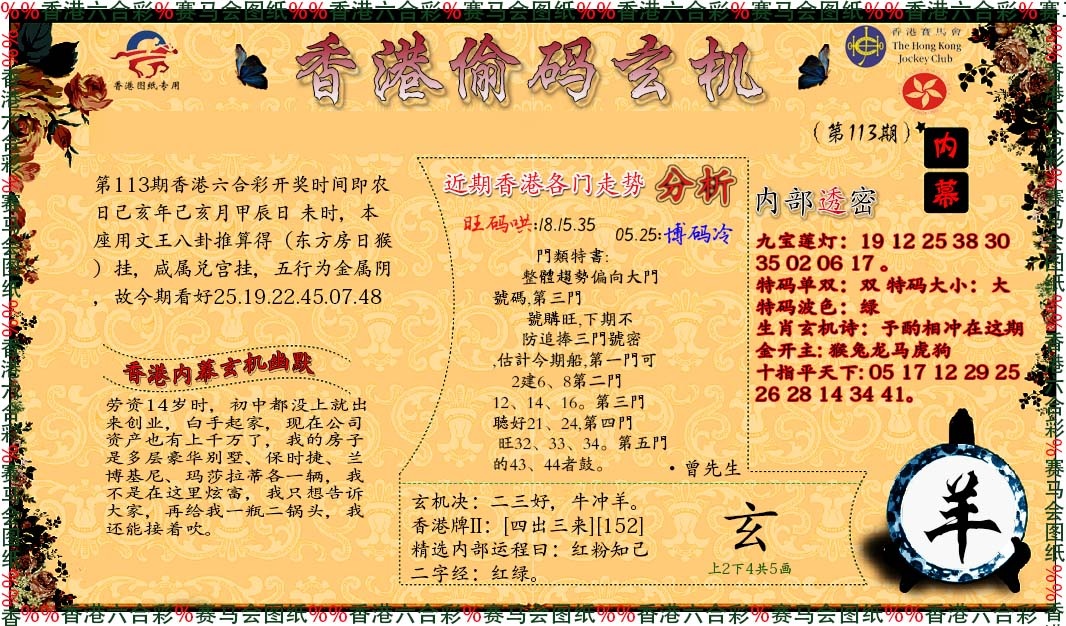 %%香港六合彩%赛马会图纸%%香港六合彩%赛马会图纸%%香港六合彩%赛马会图纸%%香港六合彩%赛
香港图纸专用
香港偷码玄机
香港賽馬會
The Hong Kong
Jockey Club
(第113期)
内
幕
第113期香港六合彩开奖时间即农
日己亥年己亥月甲辰日 未时，本
座用文王八卦推算得（东方房日猴
）挂，咸属兑宫挂，五行为金属阴
，故今期看好25.19.22.45.07.48
香港内幕玄机幽默
劳资14岁时，初中都没上就出
来创业，白手起家，现在公司
资产也有上千万了，我的房子
是多层豪华别墅、保时捷、兰
博基尼、玛莎拉蒂各一辆，我
不是在这里炫富，我只想告诉
大家，再给我一瓶二锅头，我
还能接着吹。
近期香港各门走势 分析
旺码哄:18.15.35
05.25:博码冷
門類特書:
整體趨勢偏向大門
號碼,第三門
號購旺,下期不
防追捧三門號密
,估計今期船,第一門可
2建6、8第二門
12、14、16。第三門
聽好21、24,第四門
旺32、33、34。第五門
的43、44者鼓。
·曾先生
玄机决：二三好，牛冲羊。
香港牌II：[四出三来][152]
精选内部运程曰：红粉知己
二字经：红绿。
玄
上2下4共5画
内部透密
九宝莲灯：19 12 25 38 30
35 02 06 17 。
特码单双：双 特码大小：大
特码波色：绿
生肖玄机诗：予酌相冲在这期
金开主: 猴兔龙马虎狗
十指平天下: 05 17 12 29 25
26 28 14 34 41。
羊
香%%香港六合彩%赛马会图纸%%香港六合彩%赛马会图纸%%香港六合彩%赛马会图纸%%香港六合彩%